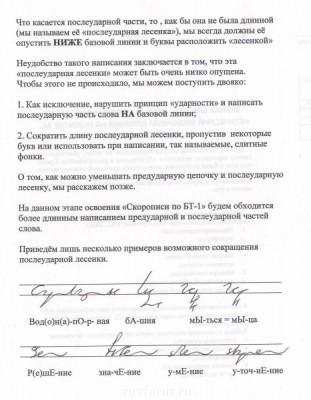 Что касается послеударной части, то , как бы она не была длинной
(мы называем её «послеударная лесенка»), мы всегда должны её
опустить НИЖЕ базовой линии и буквы расположить «лесенкой»
Неудобство такого написания заключается в том, что эта
«послеударная лесенки» может быть очень низко опущена.
Чтобы этого не происходило, мы можем поступить двояко:
1. Как исключение, нарушить принцип «ударности» и написать
послеударную часть слова НА базовой линии;
2. Сократить длину послеударной лесенки, пропустив некоторые
букв или использовать при написании, так называемые, слитные
фонки.
О том, как можно уменьшать предударную цепочку и послеударную
лесенку, мы расскажем позже.
На данном этапе освоения «Скорописи по БТ-1» будем обходится
более длинным написанием предударной и послеударной частей
слова.
Приведём лишь несколько примеров возможного сокращения
послеударной лесенки.
Вод(о)н(а)-пО-р- ная бА-шия мЫ-ться = мЫ-ца
Р(е)шЕ-ние зна-чЕ-ние у-мЕ-ние у-точ-нЕ-ние